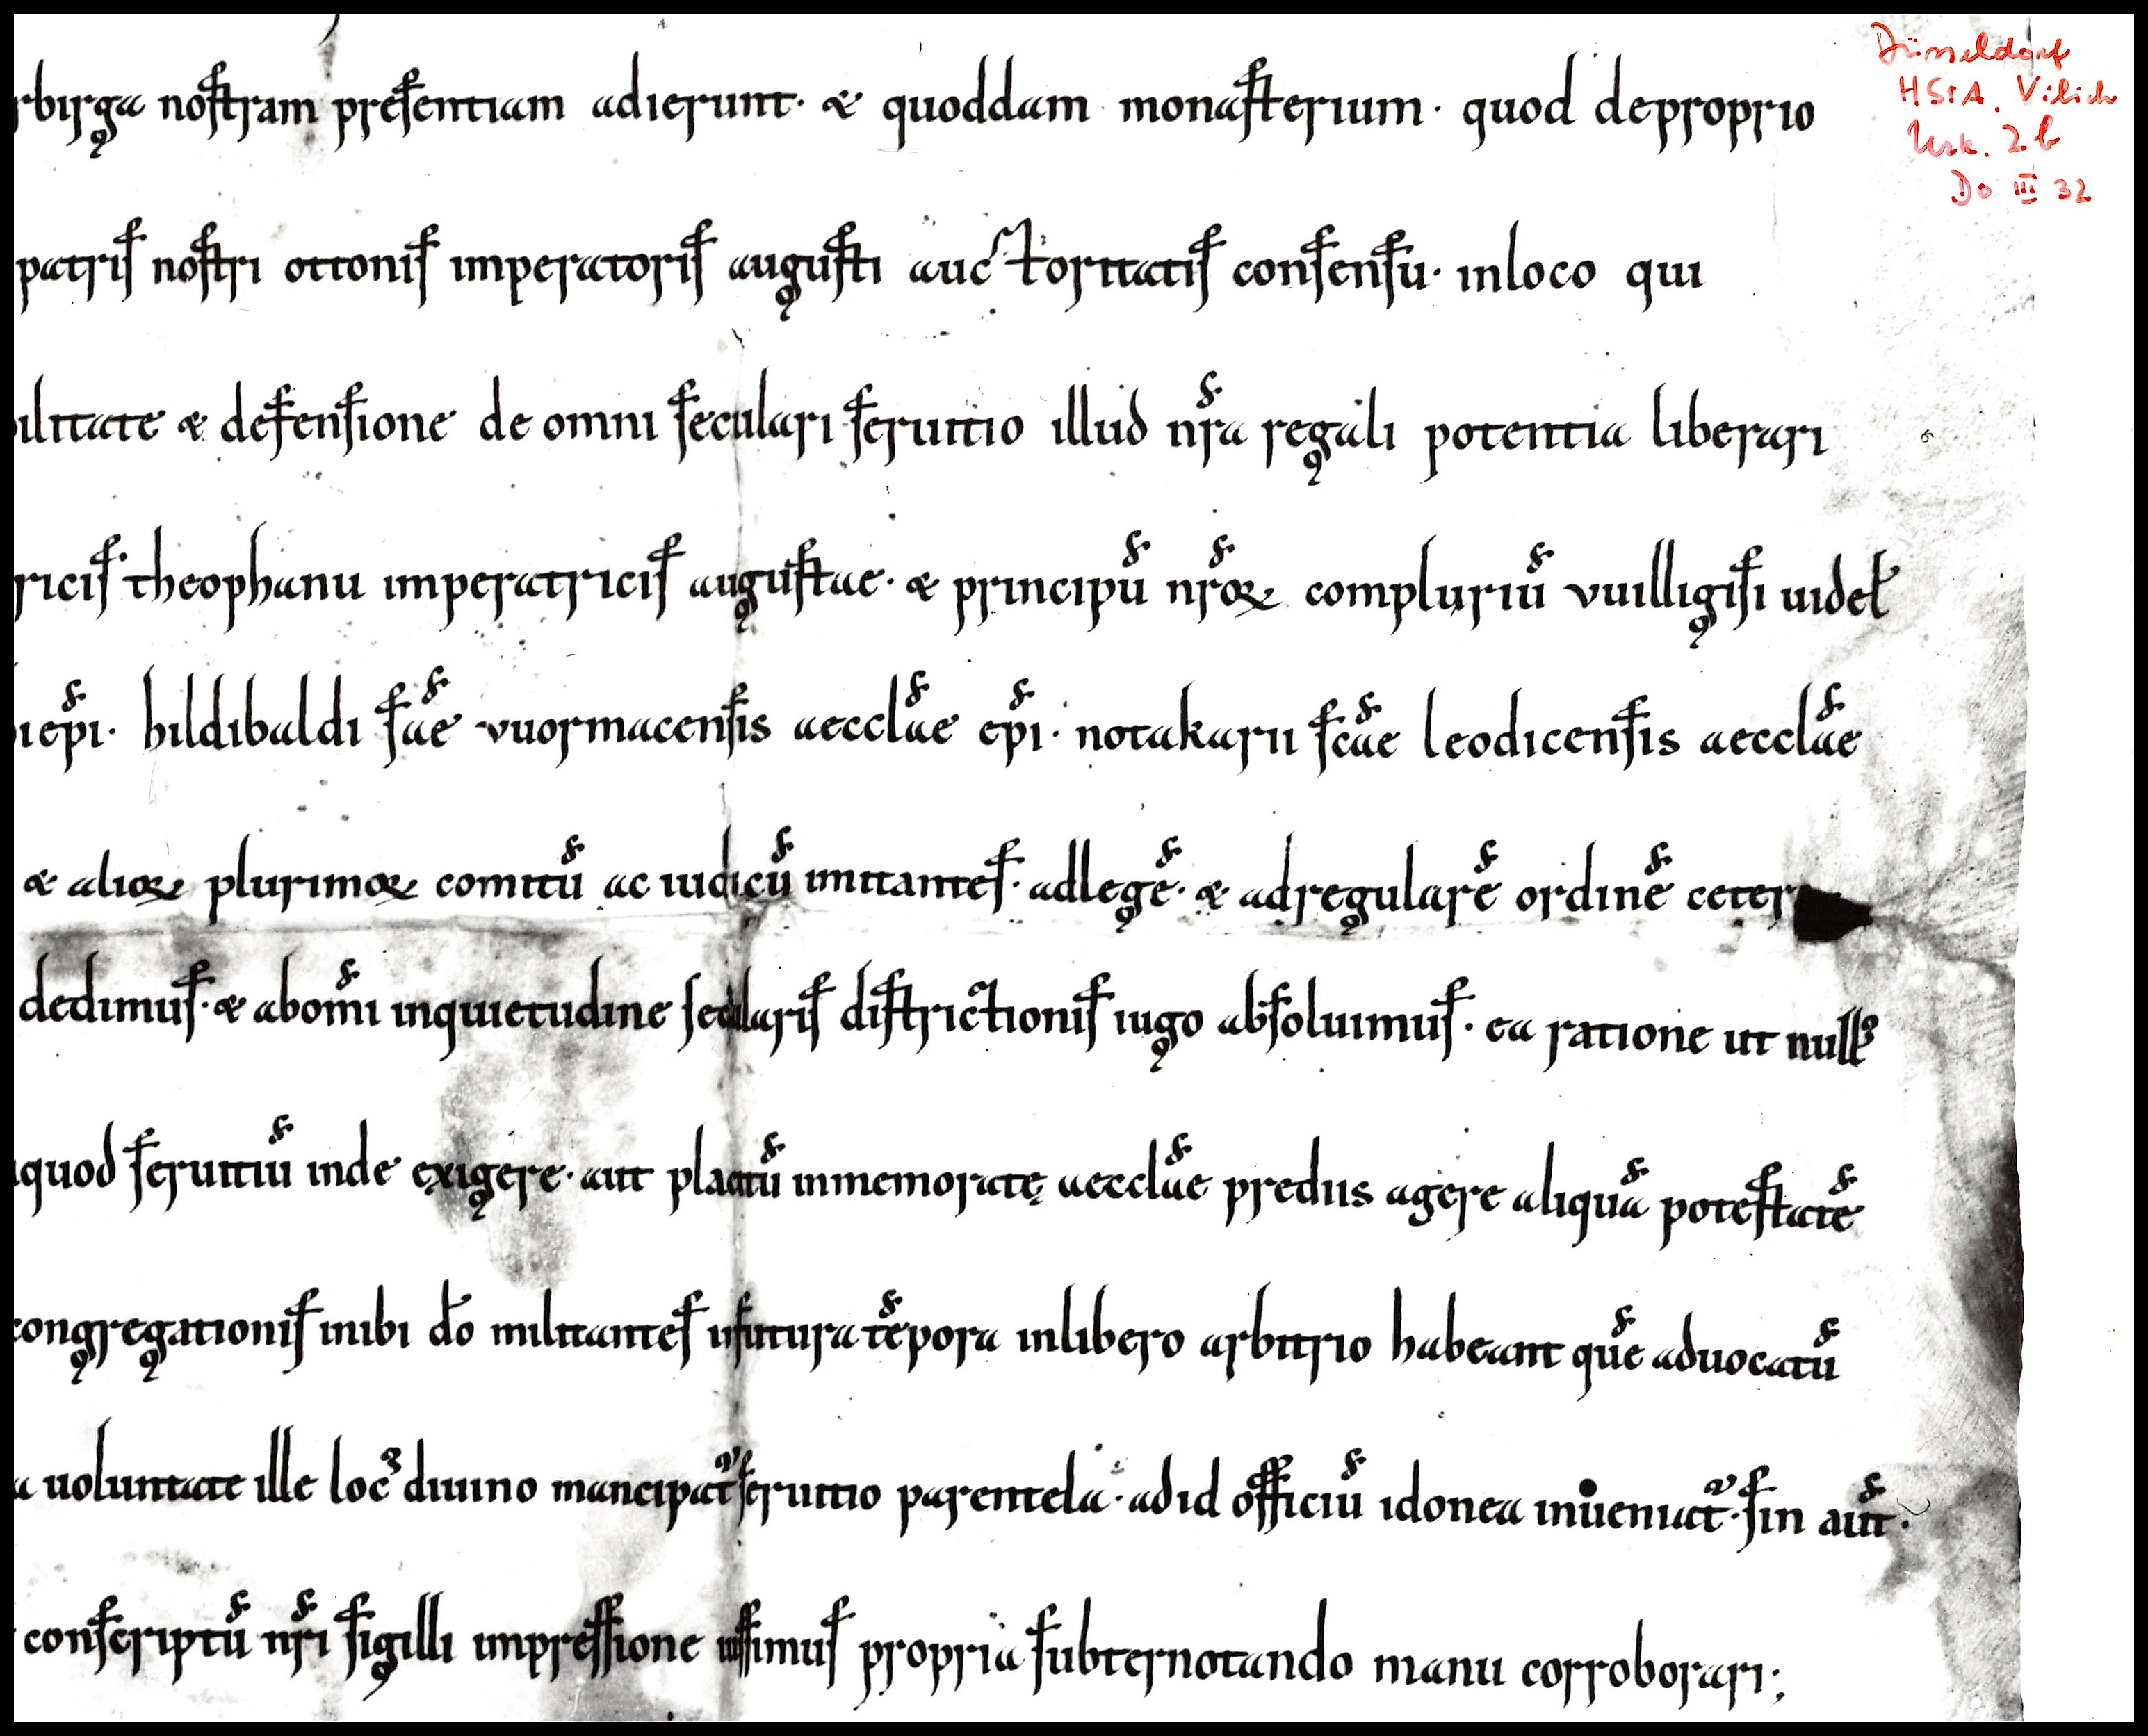 rbirga nostram presentiam adierunt· & quoddam monasterium· quod deproprio
patris nostri ottonis imperatoris augusti auctoritatis consensu· inloco qui
ilitate & defensione de omni seculari seruitio illud nr̃a regali potentia liberari
ricis theophanu imperatricis augustae· & principũ nr̃oꝝ compluriũ vuilligisi uidel̃
iepĩ· hildibaldi s̃ae vuormacensis aeccl̃ae epĩ· notakarii sc̃ae leodicensis aeccl̃ae
& alioꝝ plurimoꝝ comitũ ac iudicũ imitantes· adlegẽ· & adregularẽ ordinẽ ceter
dedimus· & abom̃i inquietudine secularis districtionis iugo absoluimus· ea ratione ut null᾿
quod seruitiũ inde exigere· aut placitũ inmemoratę aeccl̃ae prediis agere aliquã potestatẽ
congregationis inibi dõ militantes infutura tẽpora inlibero arbitrio habeant quẽ aduocatũ
a uoluntate ille loc᾿ diuino mancipat᷑ seruitio parentela· adid officiũ idonea inůeniat᷑· sin aut̃·
conscriptũ nr̃i sigilli impressione iussimus propria subternotando manu corroborari;
Düsseldorf
HStA. Vilich
Urk. 2b
DO III 32